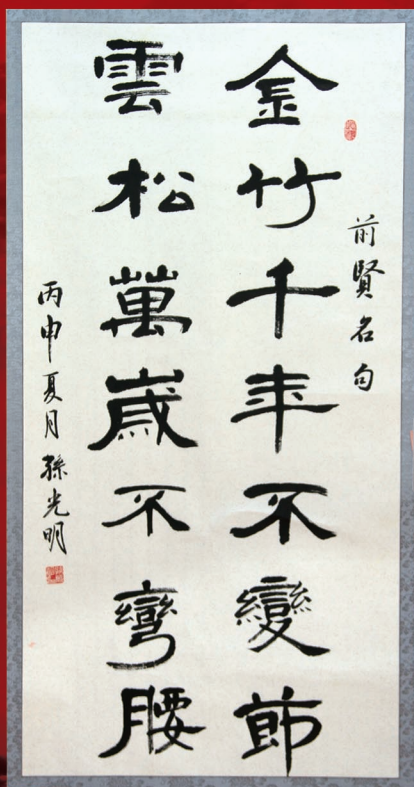 前賢名句
金竹千年不變節
雲松萬歲不彎腰
丙申夏月孫光明